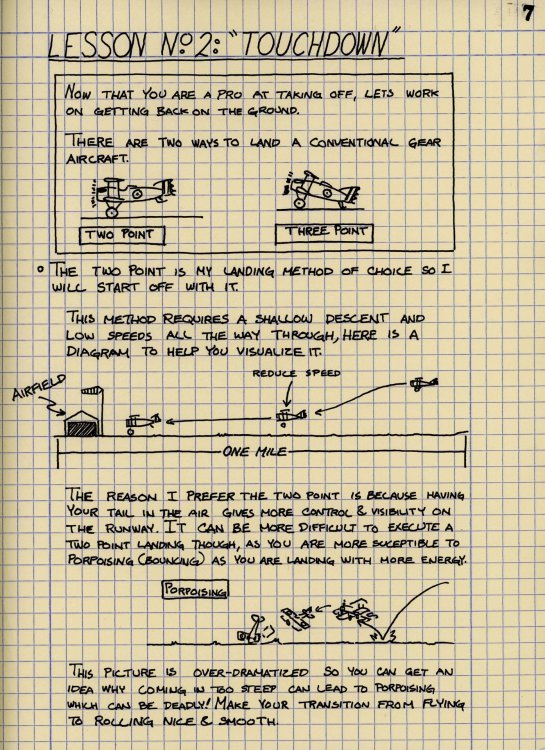 7
LESSON Nº2: "TOUCHDOWN"
NOW THAT YOU ARE A PRO AT TAKING OFF, LETS WORK
ON GETTING BACK ON THE GROUND.
THERE ARE TWO WAYS TO LAND A CONVENTIONAL GEAR
AIRCRAFT.
TWO POINT
THREE POINT
THE TWO POINT IS MY LANDING METHOD OF CHOICE SO I
WILL START OFF WITH IT.
THIS METHOD REQUIRES A SHALLOW DESCENT AND
LOW SPEEDS ALL THE WAY THROUGH, HERE IS A
DIAGRAM TO HELP YOU VISUALIZE IT.
REDUCE SPEED
AIRFIELD
ONE MILE
THE REASON I PREFER THE TWO POINT IS BECAUSE HAVING
YOUR TAIL IN THE AIR GIVES MORE CONTROL & VISIBILITY ON
THE RUNWAY. IT CAN BE MORE DIFFICULT TO EXECUTE A
TWO POINT LANDING THOUGH, AS YOU ARE MORE SUCEPTIBLE TO
PORPOISING (BOUNCING) AS YOU ARE LANDING WITH MORE ENERGY.
PORPOISING
THIS PICTURE IS OVER-DRAMATIZED SO YOU CAN GET AN
IDEA WHY COMING IN TOO STEEP CAN LEAD TO PORPOISING
WHICH CAN BE DEADLY! MAKE YOUR TRANSITION FROM FLYING
TO ROLLING NICE & SMOOTH.